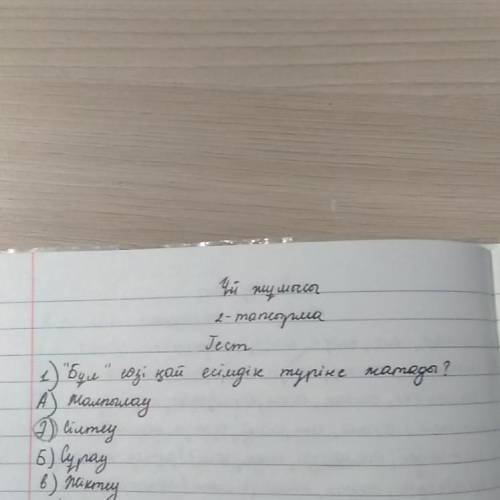 Үй жұмысы
2-тапсырма
Тест
1) "Бұл" сөзі қай есімдік түріне жатады?
А) Жалпылау
Ә) Сілтеу
Б) Сұрау
в) Жіктеу